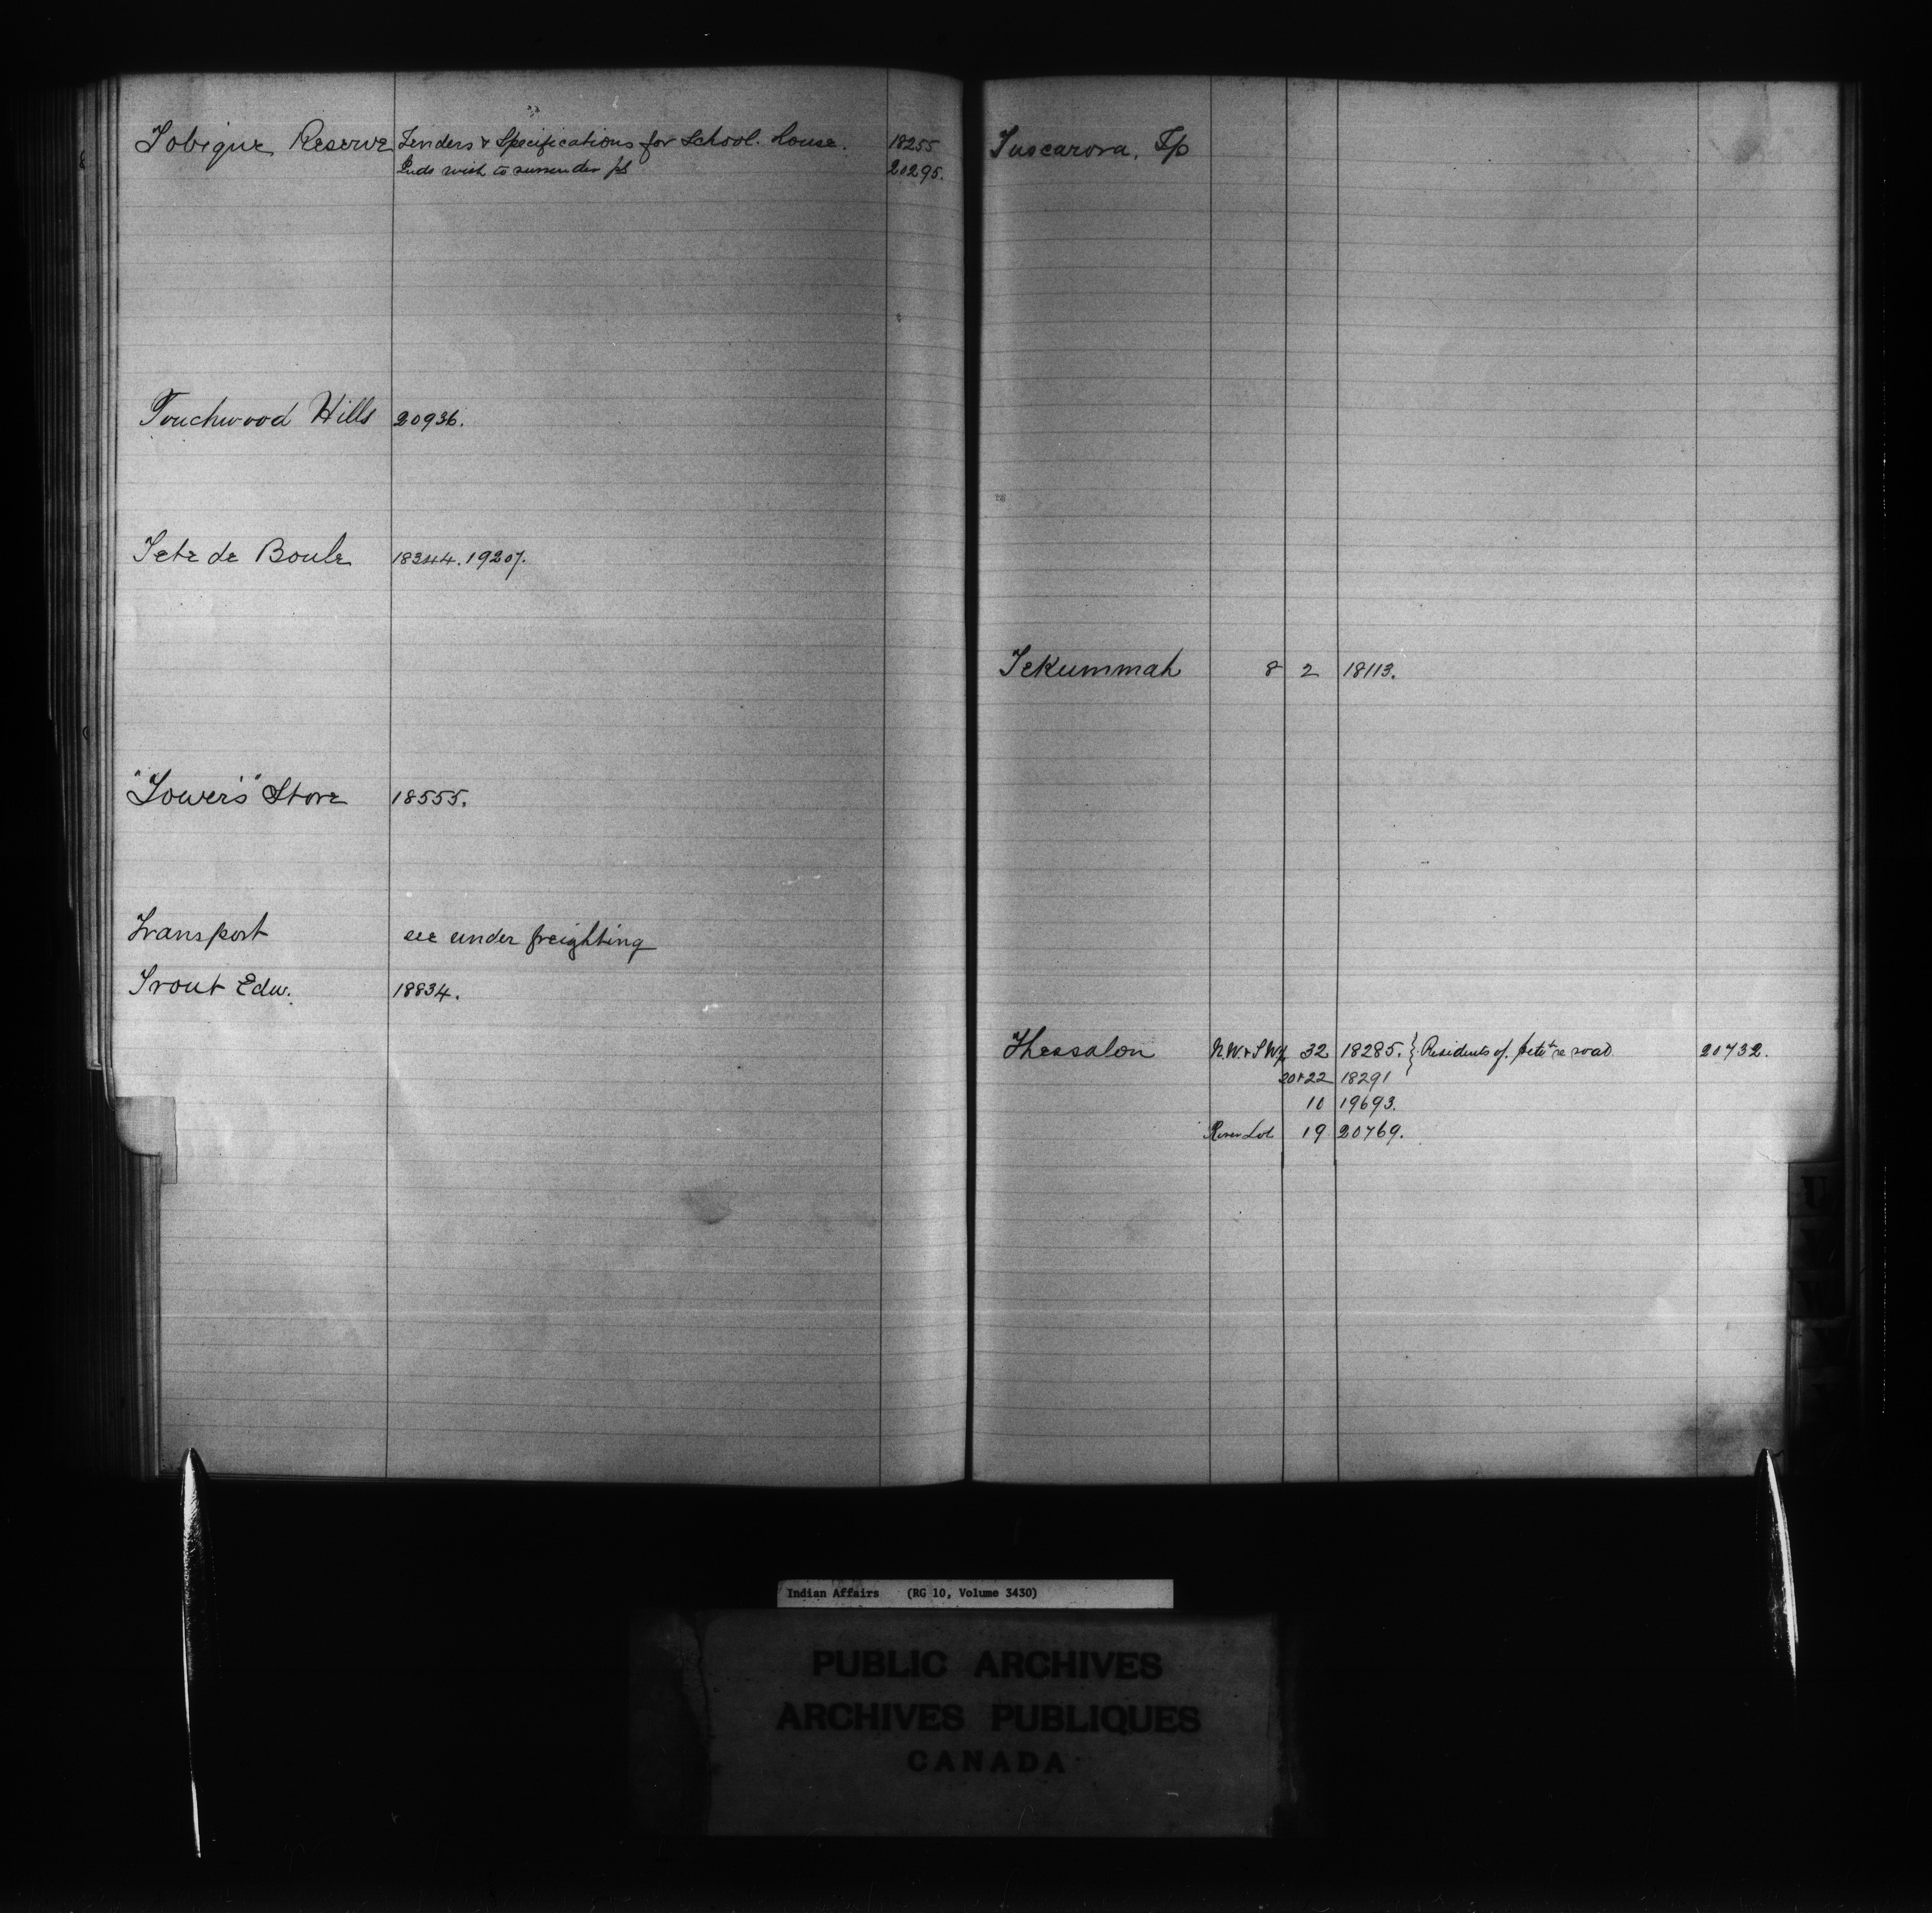 Tobique Reserve Tenders & Specifications for School House. 18255
Inds wish to surrender pt 20295.
Touchwood Hills 20936.
Tete de Boule 18344. 19207.
"Tower's" Store 18555.
Transport see under freighting
Trout Edw. 18834.
Tuscarora, Tp
Tekummah 8 2 18113.
Thessalon N.W. & S.W¼ 32 18285. } Residents of. petn re road 20732.
20+22 18291
10 19693.
River Lot 19 20769.
U
W
Indian Affairs (RG 10, Volume 3430)
PUBLIC ARCHIVES
ARCHIVES PUBLIQUES
CANADA